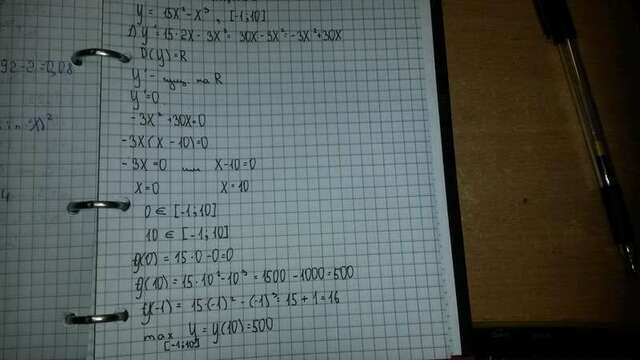 y = 15x² - x³, [-1;10]
1) y' = 15·2x - 3x² = 30x - 3x² = -3x² + 30x
D(y) = R
y' - сущ. на R
y' = 0
-3x² + 30x = 0
-3x(x - 10) = 0
-3x = 0 или x - 10 = 0
x = 0 x = 10
0 ∈ [-1;10]
10 ∈ [-1;10]
y(0) = 15·0 - 0 = 0
y(10) = 15·10² - 10³ = 1500 - 1000 = 500
y(-1) = 15·(-1)² - (-1)³ = 15 + 1 = 16
max y = y(10) = 500
[-1;10]